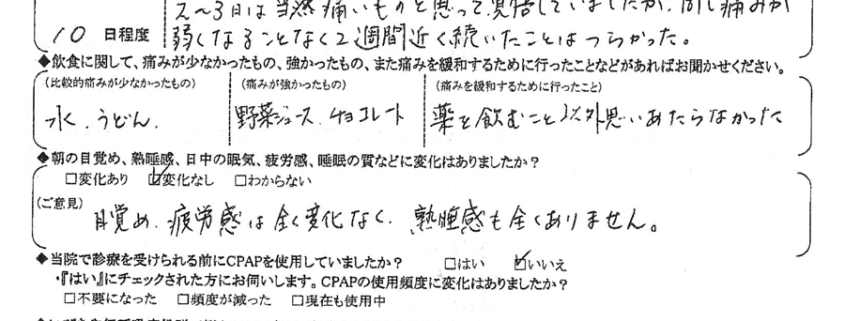 2〜3日は当然痛いものと思って覚悟していましたが、同じ痛みが
10 日程度 弱くなることなく2週間近く続いたことはつらかった。
◆飲食に関して、痛みが少なかったもの、強かったもの、また痛みを緩和するために行ったことなどがあればお聞かせください。
(比較的痛みが少なかったもの) (痛みが強かったもの) (痛みを緩和するために行ったこと)
水、うどん、 野菜ジュース、チョコレート 薬を飲むこと以外思いあたらなかった
◆朝の目覚め、熟睡感、日中の眠気、疲労感、睡眠の質などに変化はありましたか？
□変化あり ☑変化なし □わからない
(ご意見)
目覚め、疲労感は全く変化なく、熟睡感も全くありません。
◆当院で診療を受けられる前にCPAPを使用していましたか？ □はい ☑いいえ
・『はい』にチェックされた方にお伺いします。CPAPの使用頻度に変化はありましたか？
□不要になった □頻度が減った □現在も使用中